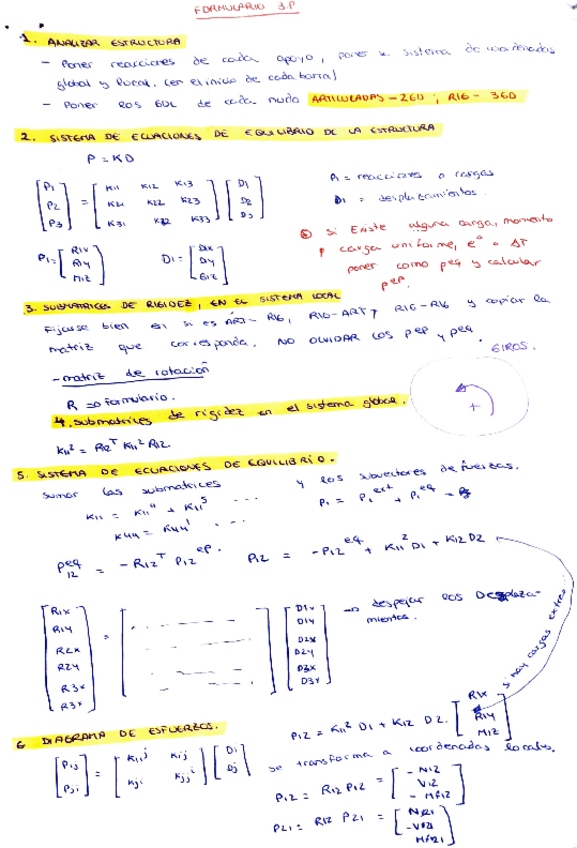 FORMULARIO 3.P
1. ANALIZAR ESTRUCTURA
- Poner reacciones de cada apoyo, poner sistema de coordenadas
global y local. (en el inicio de cada barra)
- Poner los GDL de cada nudo ARTICULADAS - 2GD ; RIG - 3GD
2. SISTEMA DE ECUACIONES DE EQUILIBRIO DE LA ESTRUCTURA
P = KD
[P1 P2 P3] = [K11 K12 K13
K21 K22 K23
K31 K32 K33] [D1 D2 D3]
Pi = reacciones o cargas
Di = desplazamientos.
P1 = [R1x R1y M1z]
D1 = [D1x D1y G1z]
Si Existe alguna carga, momento
carga uniforme, eº o ΔT
poner como peq y calcular
pep.
3. SUBMATRICES DE RIGIDEZ, EN EL SISTEMA LOCAL
Fijarse bien si es ART-RIG, RIG-ART, RIG-RIG y copiar la
matriz que corresponda. NO OLVIDAR LOS pep y peq.
- matriz de rotación
GIROS.
R => formulario.
+
4. submatrices de rigidez en el sistema global.
K11² = R12ᵀ K11² R12
5. SISTEMA DE ECUACIONES DE EQUILIBRIO.
sumar las submatrices y los subvectores de fuerzas.
K44 = K44¹ ...
P12 eq = - R12ᵀ P12 ep.
P12 = - P12 eq + K11² D1 + K12 D2
[R1x R1y R2x R2y R3x R3y] = [ ] [D1x D1y D2x D2y D3x D3y]
-> despejar los Desplaza-
mientos.
si hay cargas extre.
6 DIAGRAMA DE ESFUERZOS.
P12 = K11² D1 + K12 D2. [R1x R1y M1z]
[Pij Pji] = [Kiiʲ Kij
Kji Kjjⁱ] [Di Dj]
se transforma a coordenadas locales.
P12 = R12 P12 = [-N12 V12 -Mf12]
P21 = R12 P21 = [N21 -V21 Mf21]